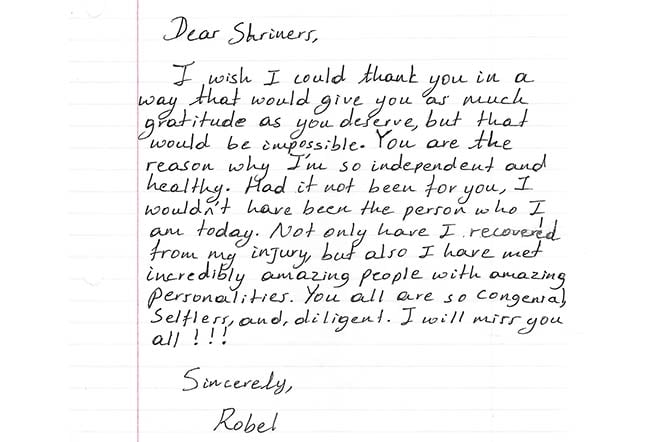 Dear Shriners,
I wish I could thank you in a
way that would give you as much
gratitude as you deserve, but that
would be impossible. You are the
reason why I'm so independent and
healthy. Had it not been for you, I
wouldn't have been the person who I
am today. Not only have I recovered
from my injury, but also I have met
incredibly amazing people with amazing
personalities. You all are so congenial,
selfless, and, diligent. I will miss you
all !!!
Sincerely,
Robel